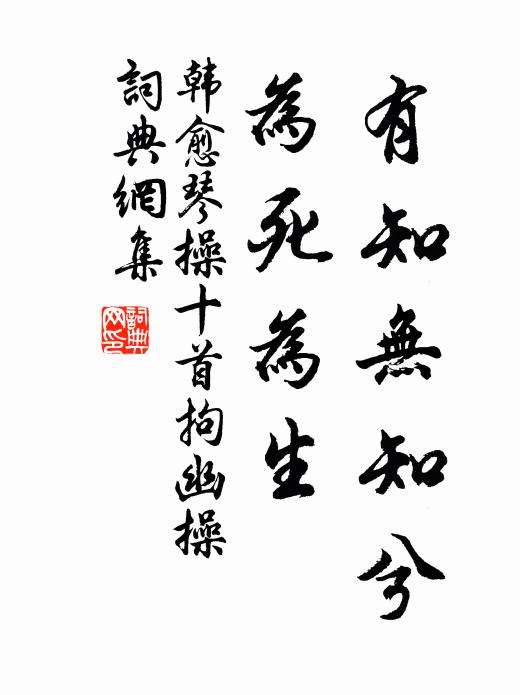 有知無知兮
為死為生
韩愈琴操十首拘幽操
詞典網集
詞典网印